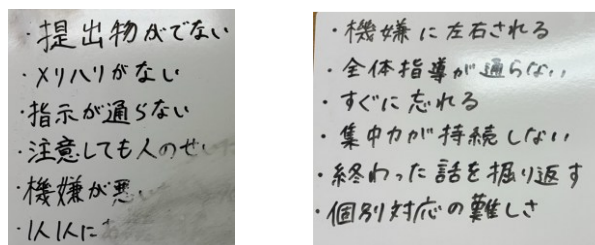 ・提出物がでない
・メリハリがない
・指示が通らない
・注意しても人のせい
・機嫌が悪い
・1人1人に
・機嫌に左右される
・全体指導が通らない
・すぐに忘れる
・集中力が持続しない
・終わった話を掘り返す
・個別対応の難しさ